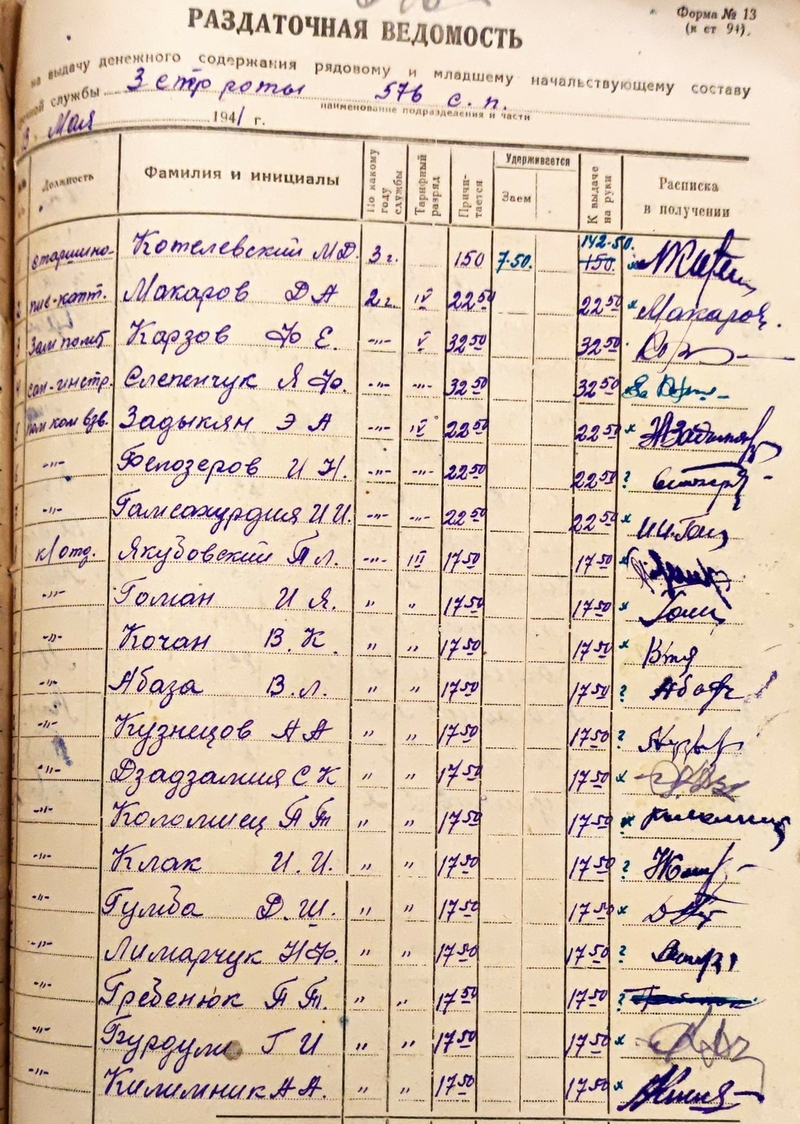 РАЗДАТОЧНАЯ ВЕДОМОСТЬ
Форма № 13
(к ст 94).
на выдачу денежного содержания рядовому и младшему начальствующему составу
службы 3 стр роты 576 с. п.
наименование подразделения и части
Мая 1941 г.
Должность Фамилия и инициалы По какому году службы Тарифный разряд Причитается Удерживается Заем К выдаче на руки Расписка в получении
1 старшина Котелевский М Д. 3 г. 150 7.50. 142-50. 150.
2 Макаров Д А 2 г. IV 22 50 22 50 х Макаров.
3 Зам полит Карзов Ф Е. -"- V 32 50 32 50
4 сан-инстр. Слепенчук Я Ф. -"- -"- 32 50 32 50
5 пом ком взв. Задыкян Э А -"- IV 22 50 22 50 х
-"- Белозеров И Н. -"- -"- 22 50 22 50 ?
-"- Гамсахурдия И И. -"- -"- 22 50 22 50 х И.И.Гам
к/отд. Якубовский П Л. -"- III 17 50 17 50 х
-"- Гоман И Я. " " 17 50 17 50 х
-"- Кочан В. К. " " 17 50 17 50 х
-"- Абаза В. Л. " " 17 50 17 50 ?
-"- Кузнецов А А " " 17 50 17 50 ?
-"- Дзадзамия С К " " 17 50 17 50 х
-"- Коломиец П П " " 17 50 17 50 х
-"- Клак И. И. " " 17 50 17 50 ?
-"- Гумба Д. Ш. " " 17 50 17 50 х
-"- Лимарчук Н Ф. " " 17 50 17 50 ?
-"- Гребенюк П П. " " 17 50 17 50 ?
-"- Г И " " 17 50 17 50 х
-"- Килимник А А. " " 17 50 17 50 х